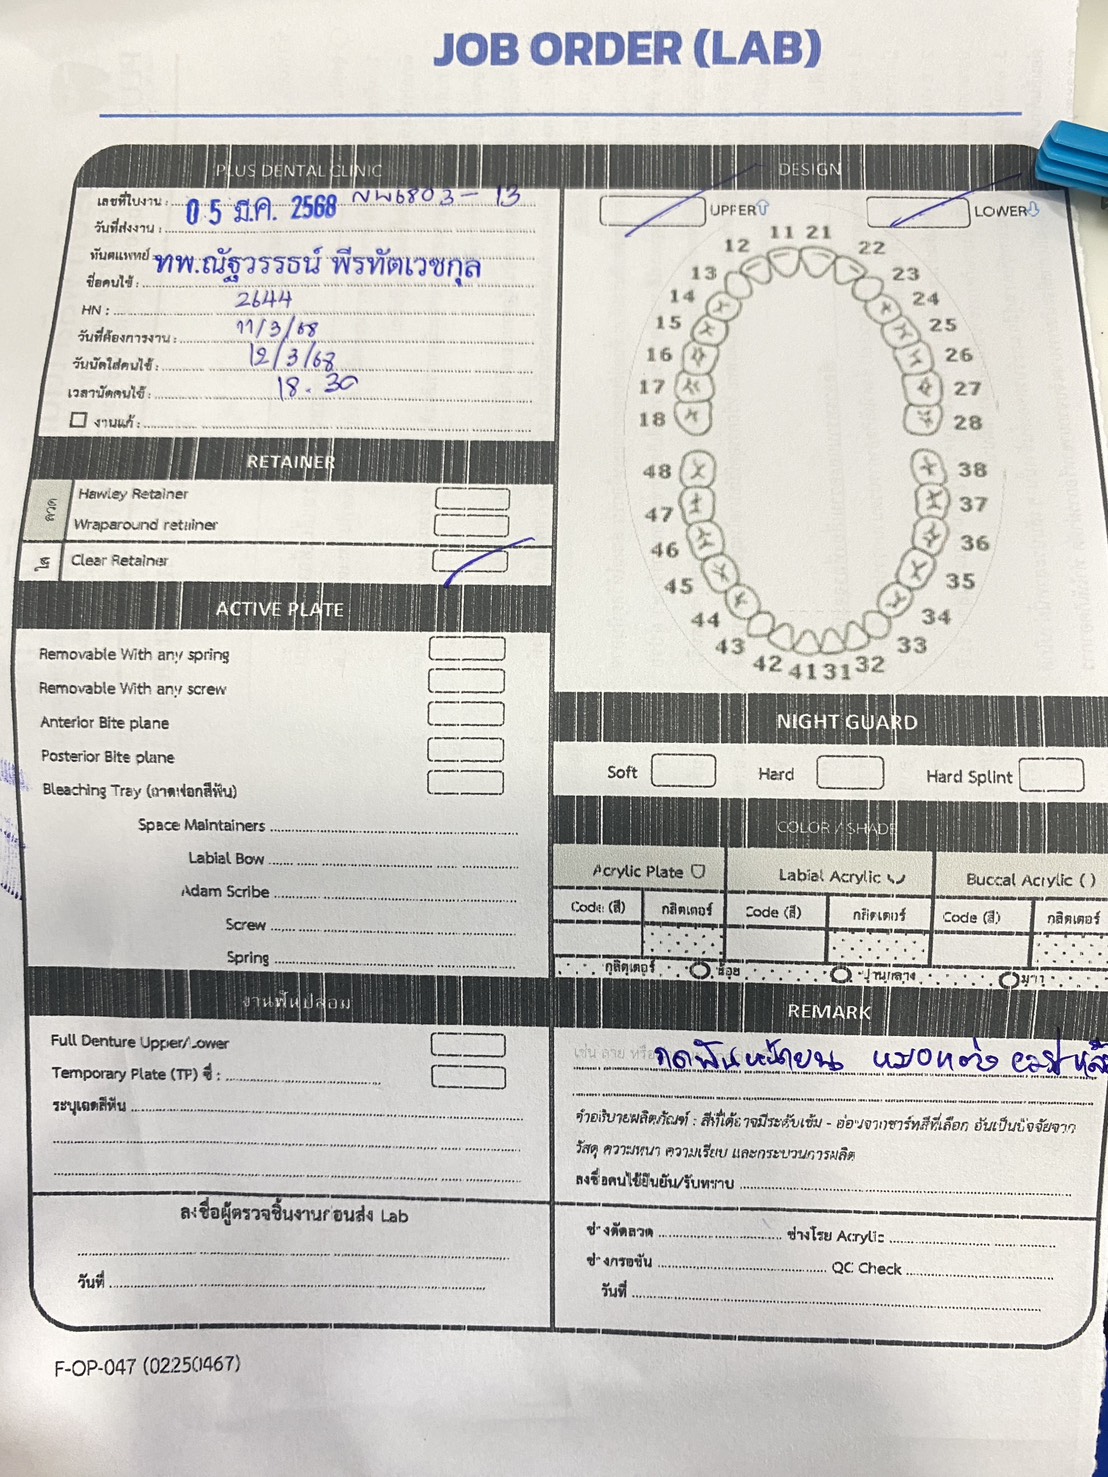 JOB ORDER (LAB)
PLUS DENTAL CLINIC
เลขที่ใบงาน : NW6803-13
วันที่ส่งงาน : 05 มี.ค. 2568
ทันตแพทย์ ทพ.ณัฐวรรธน์ พีรทัตเวชกุล
ชื่อคนไข้ :
HN : 2644
วันที่ต้องการงาน : 11/3/68
วันนัดใส่คนไข้ : 12/3/68
เวลานัดคนไข้ : 18.30
งานแก้ :
RETAINER
ลวด
Hawley Retainer
Wraparound retainer
ใส
Clear Retainer
ACTIVE PLATE
Removable With any spring
Removable With any screw
Anterior Bite plane
Posterior Bite plane
Bleaching Tray (ถาดฟอกสีฟัน)
Space Maintainers
Labial Bow
Adam Scribe
Screw
Spring
งานฟันปลอม
Full Denture Upper/Lower
Temporary Plate (TP) ซี่ :
ระบุเฉดสีฟัน
ลงชื่อผู้ตรวจชิ้นงานก่อนส่ง Lab
วันที่
DESIGN
UPPER LOWER
11 21
12 22
13 23
14 24
15 25
16 26
17 27
18 28
48 38
47 37
46 36
45 35
44 34
43 33
42 41 31 32
NIGHT GUARD
Soft Hard Hard Splint
COLOR / SHADE
Acrylic Plate Labial Acrylic Buccal Acrylic ( )
Code (สี) กลิตเตอร์ Code (สี) กลิตเตอร์ Code (สี) กลิตเตอร์
กลิตเตอร์ น้อย ปานกลาง มาก
REMARK
เช่น ลาย หรือ กดฟันหน้าบน หมอแต่ง
คำอธิบายผลิตภัณฑ์ : สีที่ได้อาจมีระดับเข้ม - อ่อนจากชาร์ทสีที่เลือก อันเป็นปัจจัยจาก
วัสดุ ความหนา ความเรียบ และกระบวนการผลิต
ลงชื่อคนไข้ยืนยัน/รับทราบ
ช่างดัดลวด ช่างโรย Acrylic
ช่างกรอขัน QC Check
วันที่
F-OP-047 (02250467)